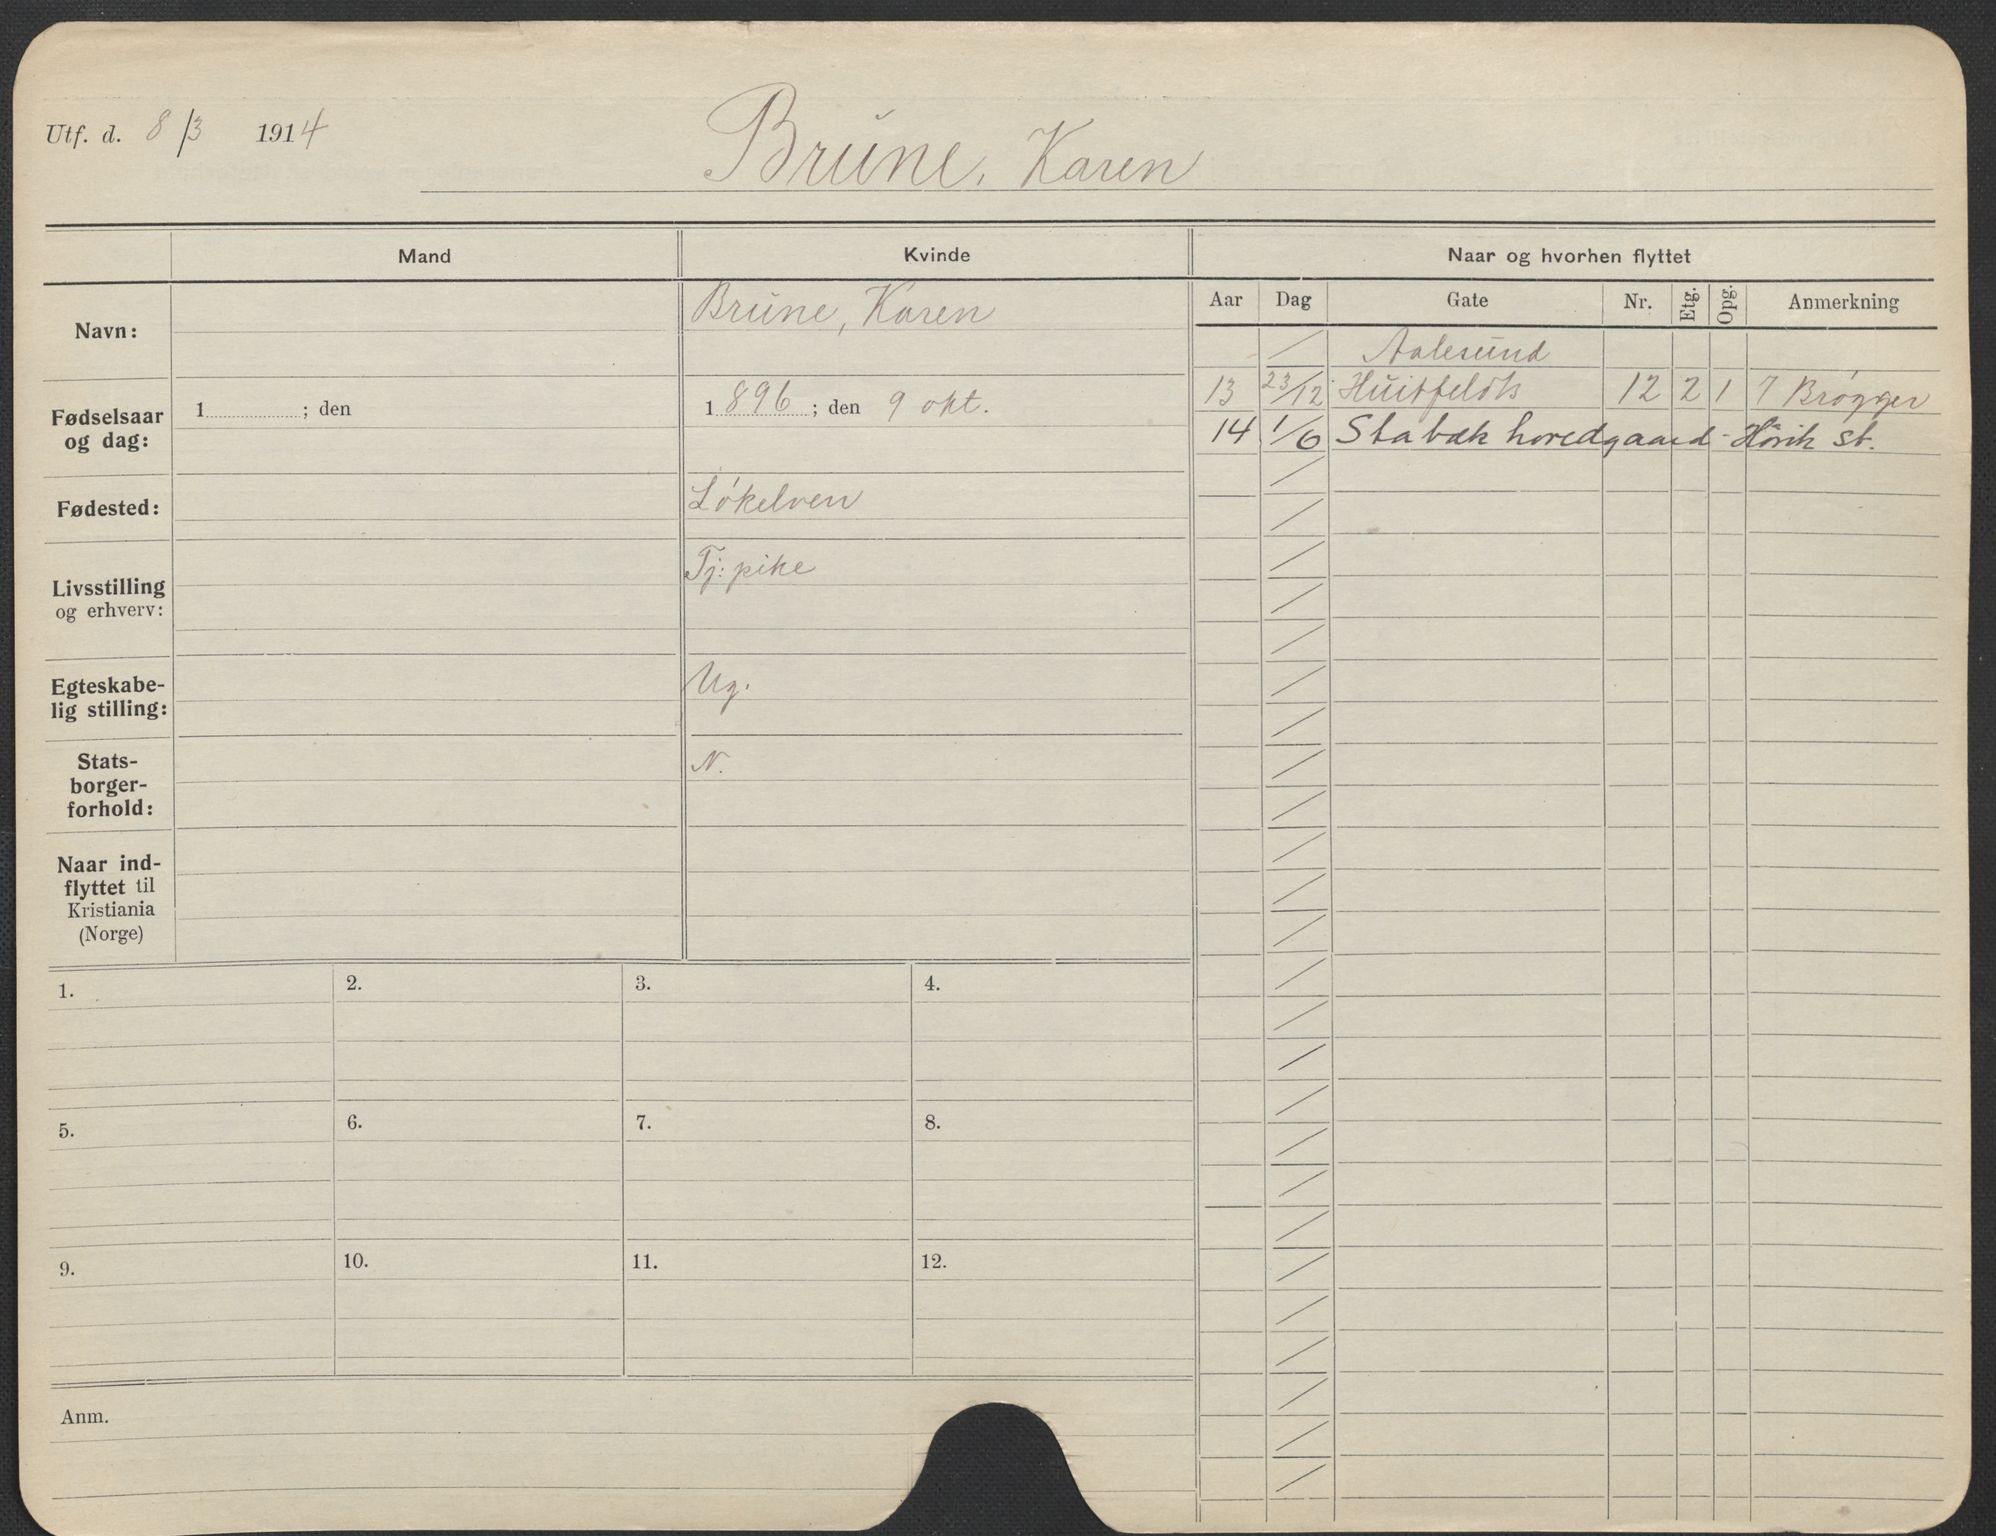 Utf. d. 8/3 1914
Brune, Karen
Mand
Kvinde
Naar og hvorhen flyttet
Aar Dag Gate Nr. Etg. Opg. Anmerkning
Navn:
Brune, Karen
Fødselsaar og dag:
1 ; den
1896 ; den 9 okt.
Fødested:
Løkelven
Livsstilling og erhverv:
Tj: pike
Egteskabe-
lig stilling:
Ug.
Stats-
borger-
forhold:
N.
Naar ind-
flyttet til
Kristiania
(Norge)
Aalesund
13 23/12 Huitfeldts 12 2 1 7 Brøgger
14 1/6 Stabæk hovedgaard - st.
1.
2.
3.
4.
5.
6.
7.
8.
9.
10.
11.
12.
Anm.